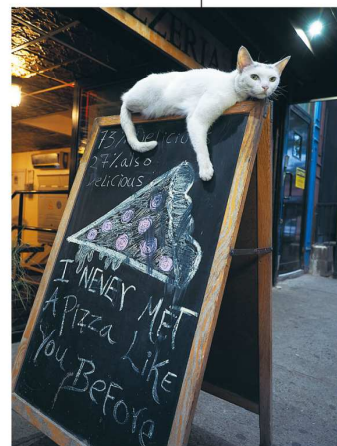 PIZZERIA
73% delicious
27% also
delicious
I NEVER MET
A Pizza LIKE
You BEFORE